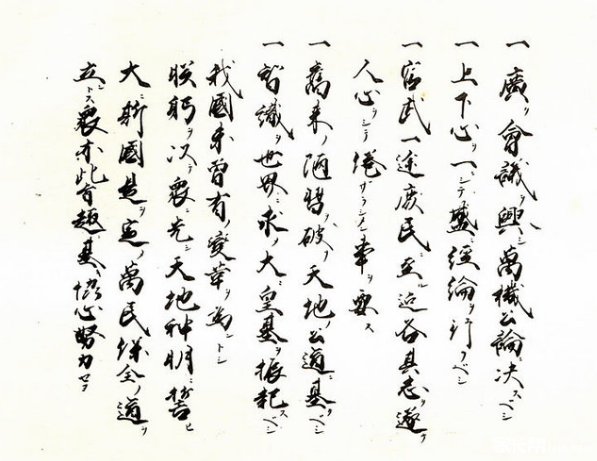 一 廣ク會議ヲ興シ萬機公論ニ決スベシ
一 上下心ヲ一ニシテ盛ニ經綸ヲ行フベシ
一 官武一途庶民ニ至ル迄各其志ヲ遂ケ
人心ヲシテ倦マザラシメン事ヲ要ス
一 舊来ノ陋習ヲ破リ天地ノ公道ニ基クベシ
一 智識ヲ世界ニ求メ大ニ皇基ヲ振起スベシ
我國未曾有ノ變革ヲ為ントシ
朕躬ヲ以テ衆ニ先シ天地神明ニ誓ヒ
大ニ斯國是ヲ定メ萬民保全ノ道ヲ
立ントス衆亦此旨趣ニ基キ協心努力セヨ